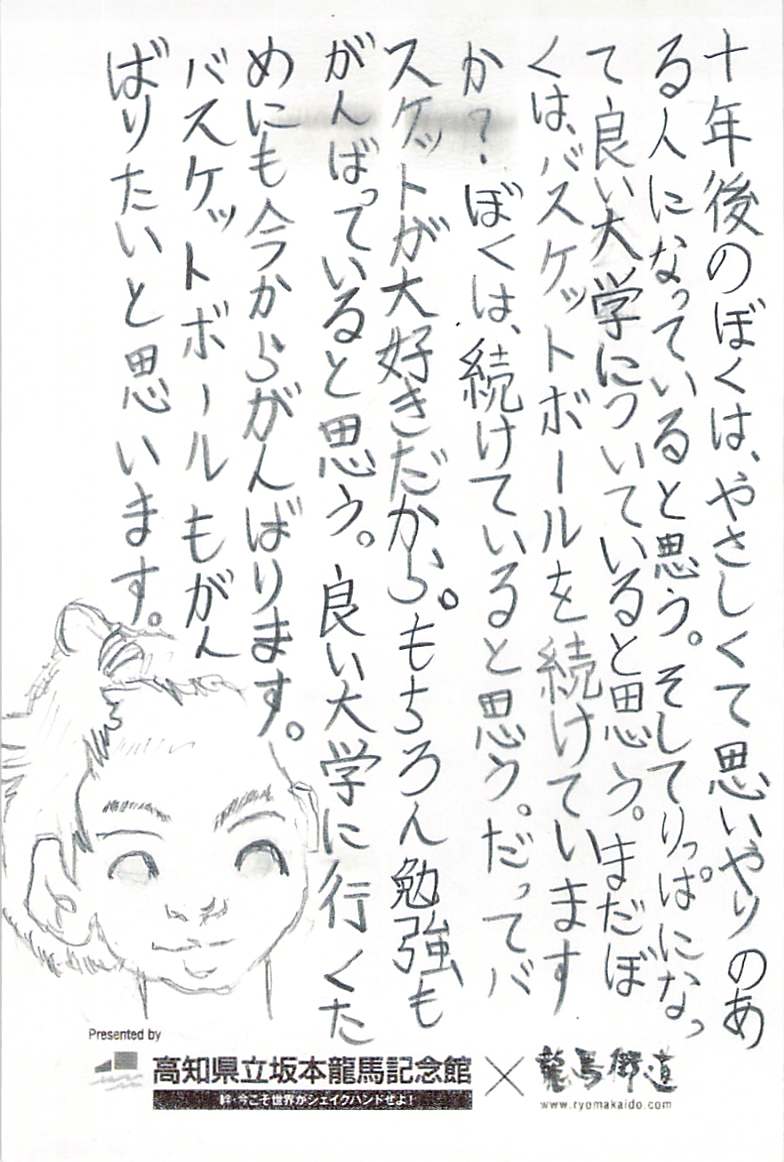 十年後のぼくは、やさしくて思いやりのあ
る人になっていると思う。そしてりっぱになっ
て良い大学についていると思う。まだぼ
くは、バスケットボールを続けています
か?ぼくは、続けていると思う。だってバ
スケットが大好きだから。もちろん勉強も
がんばっていると思う。良い大学に行くた
めにも今からがんばります。
バスケットボールもがん
ばりたいと思います。
Presented by
高知県立坂本龍馬記念館
絆・今こそ世界がシェイクハンドせよ!
×
龍馬街道
www.ryomakaido.com